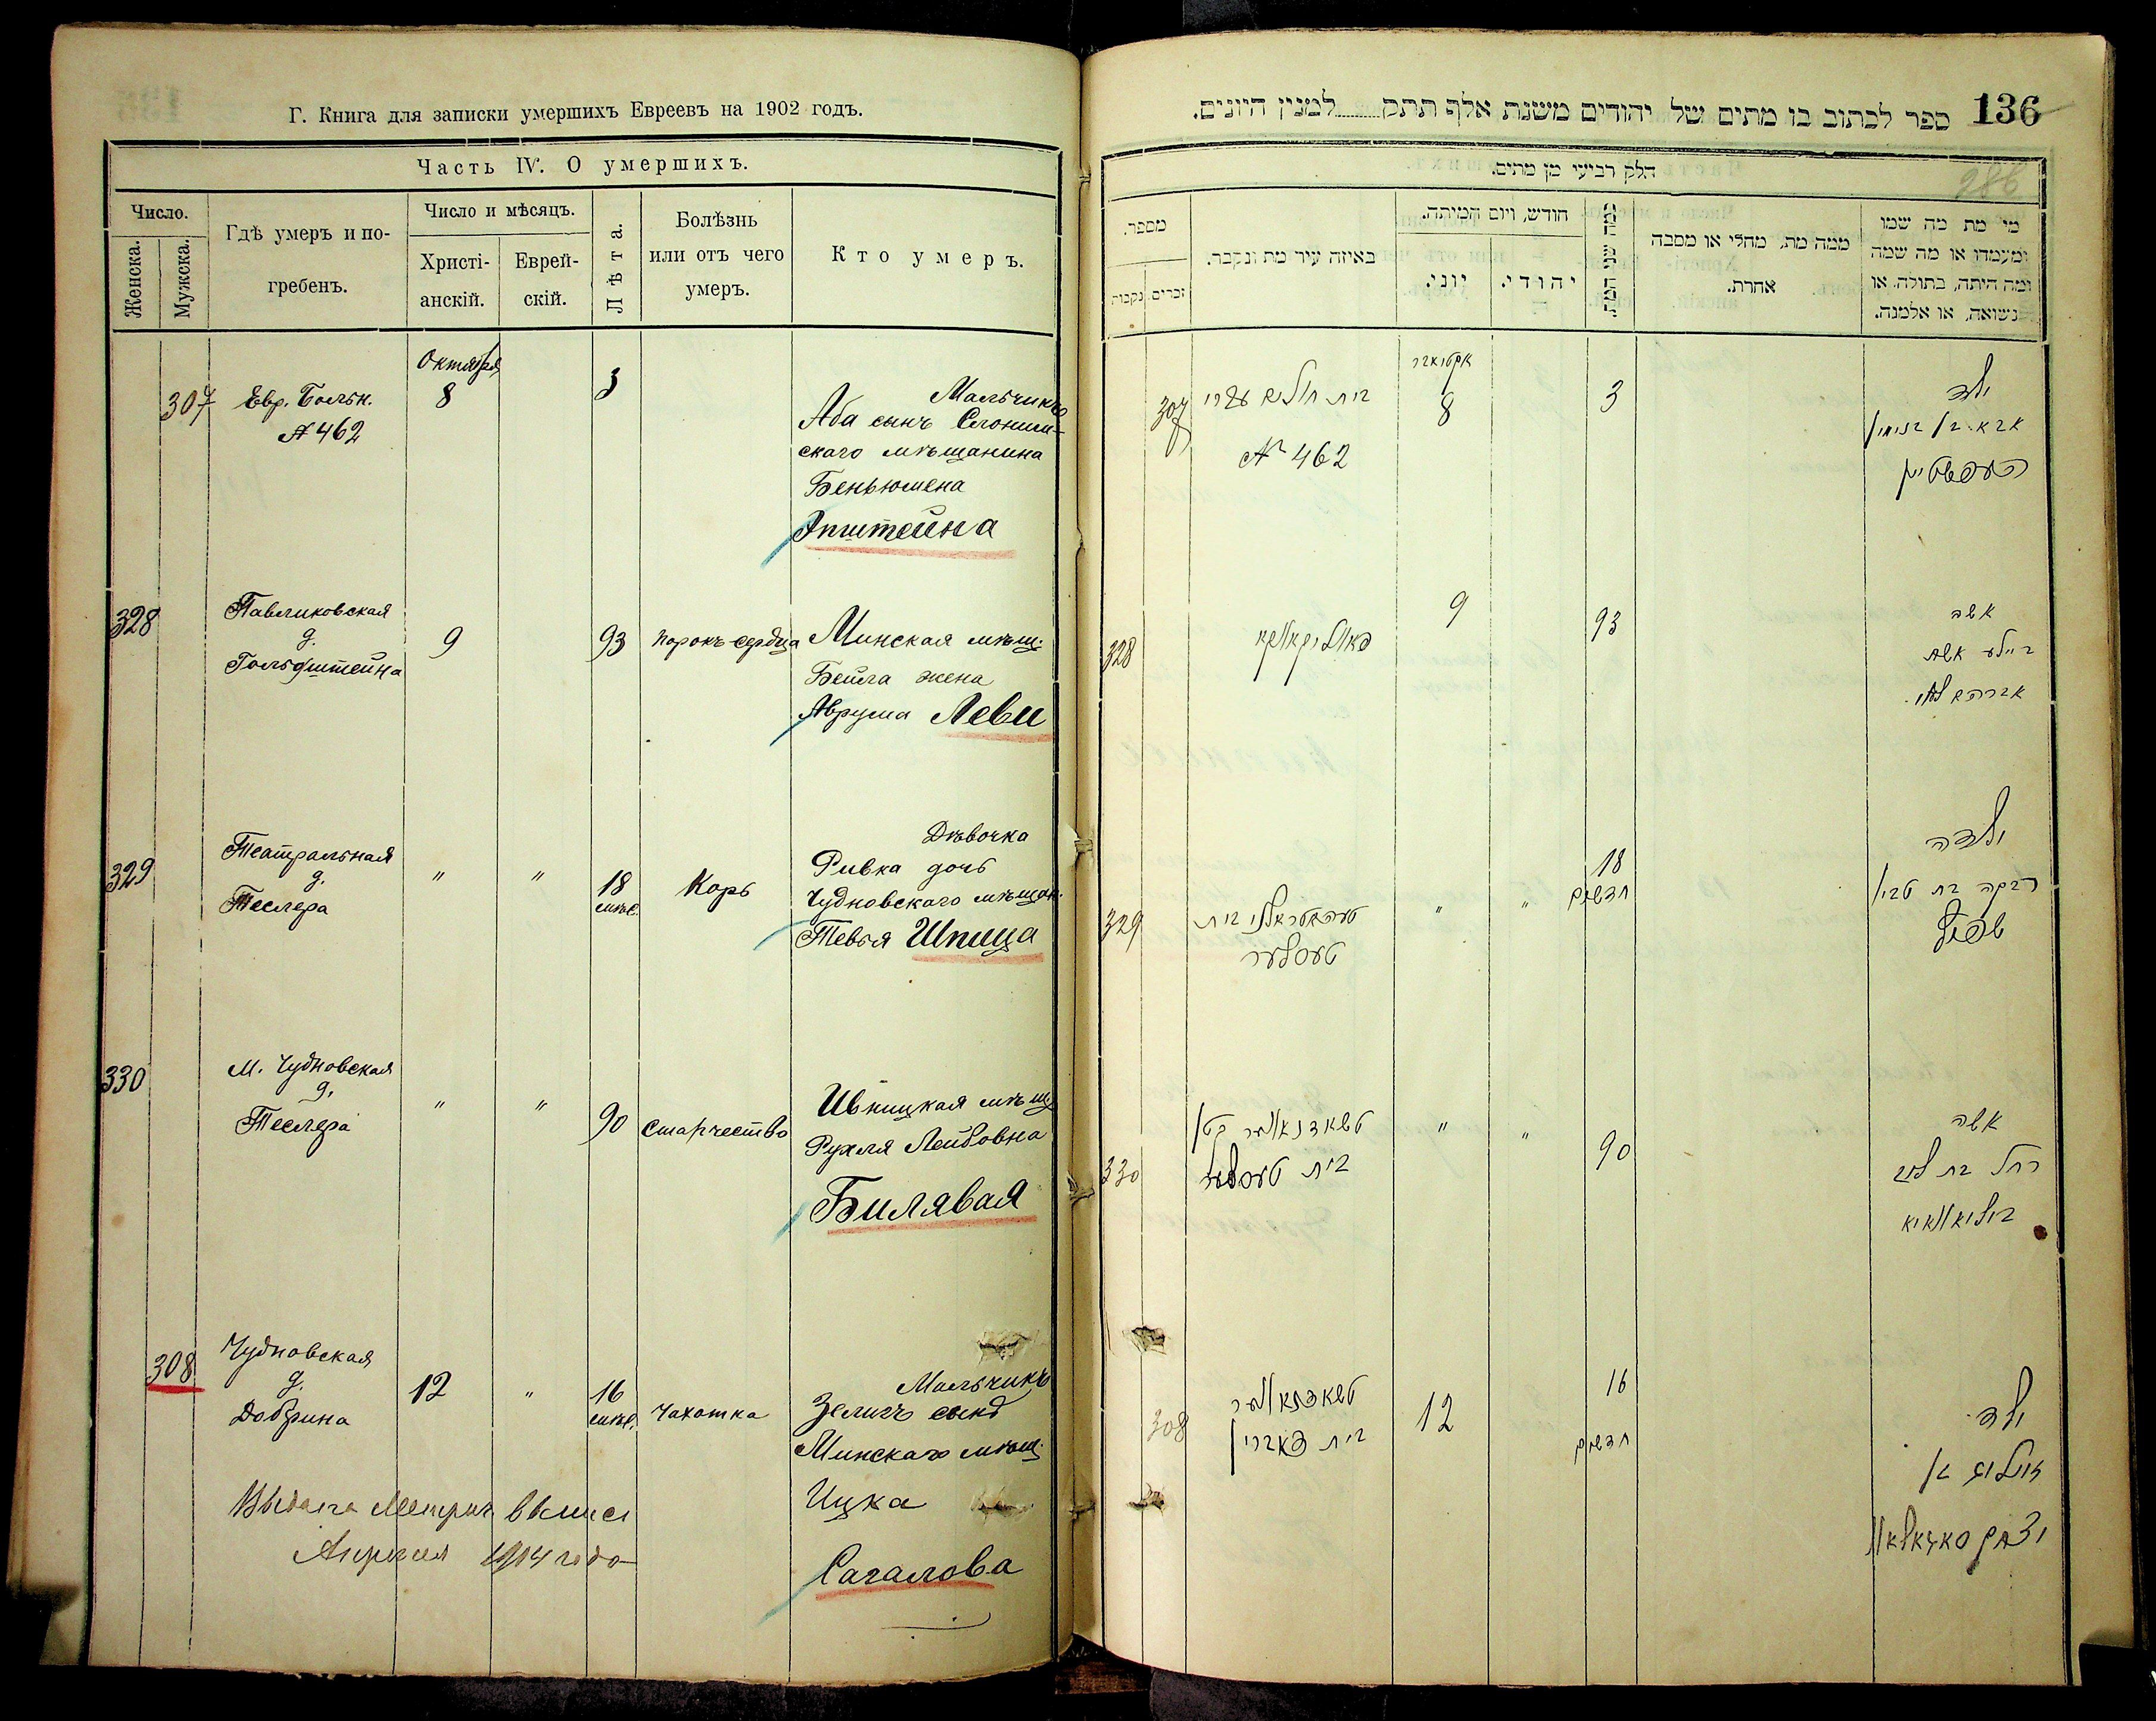 Г. Книга для записки умершихъ Евреевъ на 1902 годъ.
Часть IV. О умершихъ.
Число.
Женска.
Мужска.
Гдѣ умеръ и по-
гребенъ.
Число и мѣсяцъ.
Христі-
анскій.
Еврей-
скій.
Лѣта.
Болѣзнь
или отъ чего
умеръ.
Кто умеръ.
307
Евр. Больн.
№ 462
Октября
8
3
Мальчикъ
Аба сынъ Слоним-
скаго мѣщанина
Беньюмена
Эпштейна
328
Павликовская
д.
Гольдштейна
9
93
порокъ сердца
Минская мѣщ.
Бейла жена
Аврума Леви
329
Театральная
д.
Теслера
"
"
18
мѣс.
Корь
Дѣвочка
Ривка дочь
Чудновскаго мѣщан.
Тевья Шпица
330
М. Чудновская
д.
Теслера
"
"
90
старчество
Ивницкая мѣщ.
Рухля Лейбовна
Билявая
308
Чудновская
д.
Добрина
12
"
16
мѣс.
Чахотка
Мальчикъ
Зеликъ сынъ
Минскаго мѣщ.
Ицка
Сагалова
Выдана Метрич.
Апреля 1914 года
136
ספר לכתוב בו מתים של יהודים משנת אלף תתק למנין היונים.
חלק רביעי מן מתים.
286
מספר.
נקבות
זכרים.
באיזה עיר מת ונקבר.
חודש, ויום המיתה.
יוני.
יהודי.
כמה שני המת.
ממה מת, מחלי או מסבה
אחרת.
מי מת מה שמו
ומעמדו או מה שמה
ומה היתה, בתולה, או
נשואה, או אלמנה.
307
בית חולים עברי
№ 462
אקטיאבר
8
3
ילד
אבא בן בנימין
עפשטיין
328
פאוליקאווקא
9
93
אשה
ביילע אשת
אברהם לוי
329
טעאטראלני בית
טעסלער
"
"
18
חדשים
ילדה
רבקה בת טביה
שפיץ
330
טשאדנאווער קטן
בית טעסלער
"
"
90
אשה
רחל בת ליב
ביליאוואיא
308
טשאדנאווער
בית דאברין
12
16
חדשים
ילד
זעליג בן
יצחק סאגאלאוו